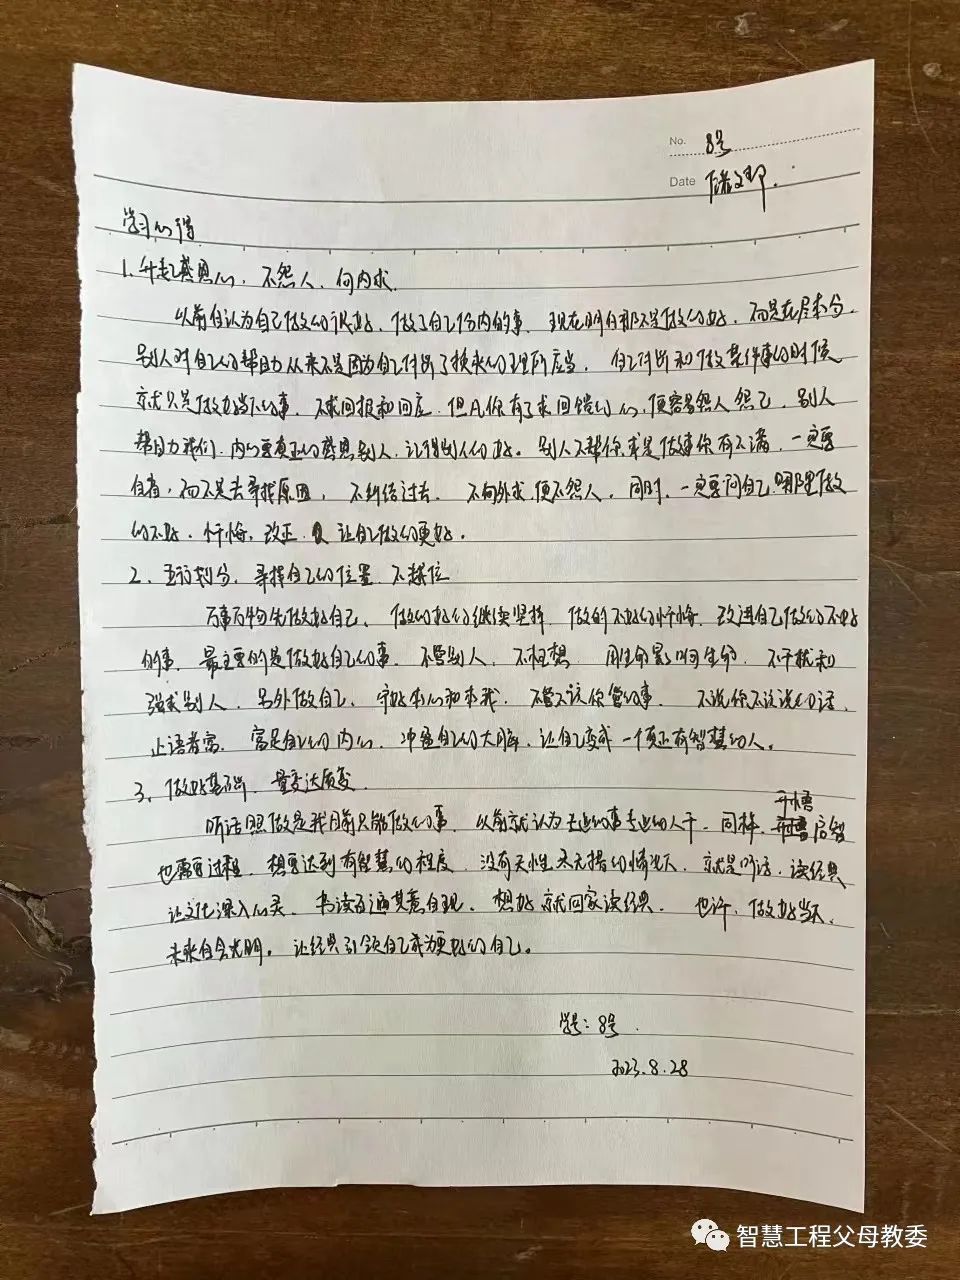 No. 8号
Date
学习心得
1、升起感恩心，不怨人，向内求.
以前自认为自己做的很好，做了自己份内的事，现在明白那不是做的好，而是在尽本分.
别人对自己的帮助从来不是因为自己付出了换来的理所应当，自己付出和做某件事的时候
就只是做好当下的事，不求回报和回应，但凡你有了求回馈的心，便容易怨人怨己，别人
帮助我们，内心要真正的感恩别人，记得别人的好。别人不帮你或是做事你有不满，一定要
自省，而不是去寻找原因，不纠结过去，不向外求，便不怨人，同时，一定要问自己哪里做
的不好，忏悔，改正，让自己做的更好。
2、五行划分，寻择自己的位置，不越位
万事万物先做好自己，做的好的继续坚持，做的不好的忏悔，改进自己做的不好
的事，最主要的是做好自己的事，不管别人，不枉想，用生命影响生命，不干扰和
强求别人，另外做自己，守好本心和本我，不管不该你管的事，不说你不该说的话，
止语者富，富足自己的内心，冲盈自己的大脑，让自己变成一个真正有智慧的人。
3、做好基础，量变达质变.
听话照做是我目前只能做的事，以前就认为专业的事专业的人干，同样，开悟启智
也需要过程，想要达到有智慧的程度，没有天性又无捷的情况下，就是听话，读经典
让文化深入心灵，书读百遍其意自现，想好就回家读经典，也许，做好当下，
未来自会光明。让经典引领自己成为更好的自己。
学号：8号.
2023.8.28
智慧工程父母教委